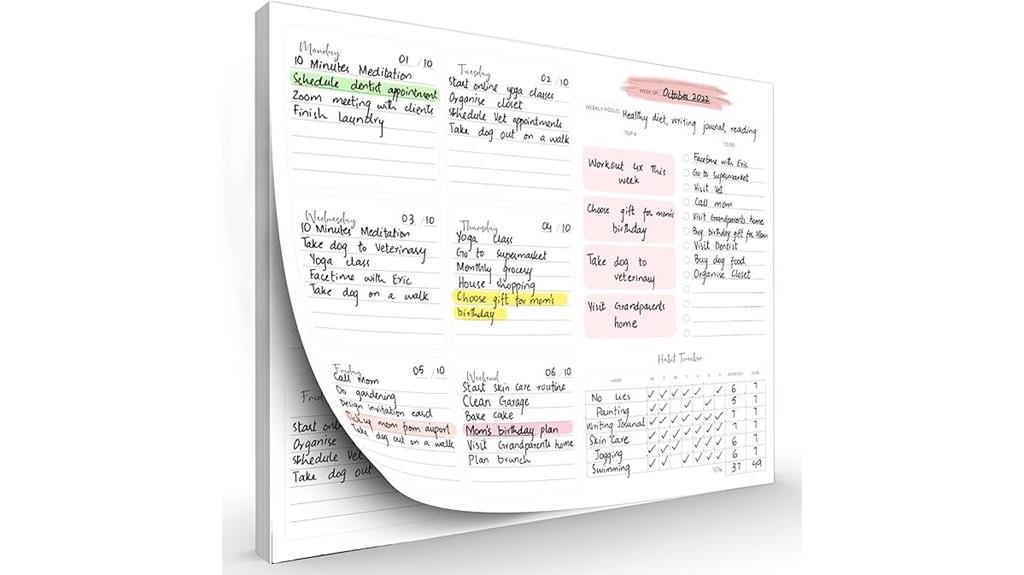 Monday 01 / 10
10 Minutes Meditation
Schedule dentist appointment
Zoom meeting with clients
Finish laundry
Tuesday 02 / 10
Start online yoga classes
Organise closet
Schedule Vet appointments
Take dog out on a walk
WEEK OF October 2022
WEEKLY FOCUS Healthy diet, writing journal, reading
TOP 4
Workout 4x this
week
Choose gift for mom's
birthday
Take dog to
veterinary
Visit Grandparents
home
TO DO
Facetime with Eric
Go to supermarket
Visit Vet
Call mom
Visit Grandparents home
Buy birthday gift for Mom
Visit Dentist
Buy dog food
Organise Closet
Wednesday 03 / 10
10 Minutes Meditation
Take dog to veterinary
Yoga class
Facetime with Eric
Take dog on a walk
Thursday 04 / 10
Yoga class
Go to supermarket
Monthly grocery
House shopping
Choose gift for mom's
birthday
Friday 05 / 10
Call Mom
Do gardening
Design invitation card
Pickup mom from airport
Take dog out on a walk
Weekend 06 / 10
Start skin care routine
Clean Garage
Bake cake
Mom's birthday plan
Visit Grandparents home
Plan brunch
Habit Tracker
HABIT M T W T F S S GOAL
No Lies 6 7
Painting 5 7
Writing Journal 7 7
Skin Care 7 7
Jogging 6 7
Swimming 6 7
37 49
Start onl
Organise
Schedule Vet
Take dog out